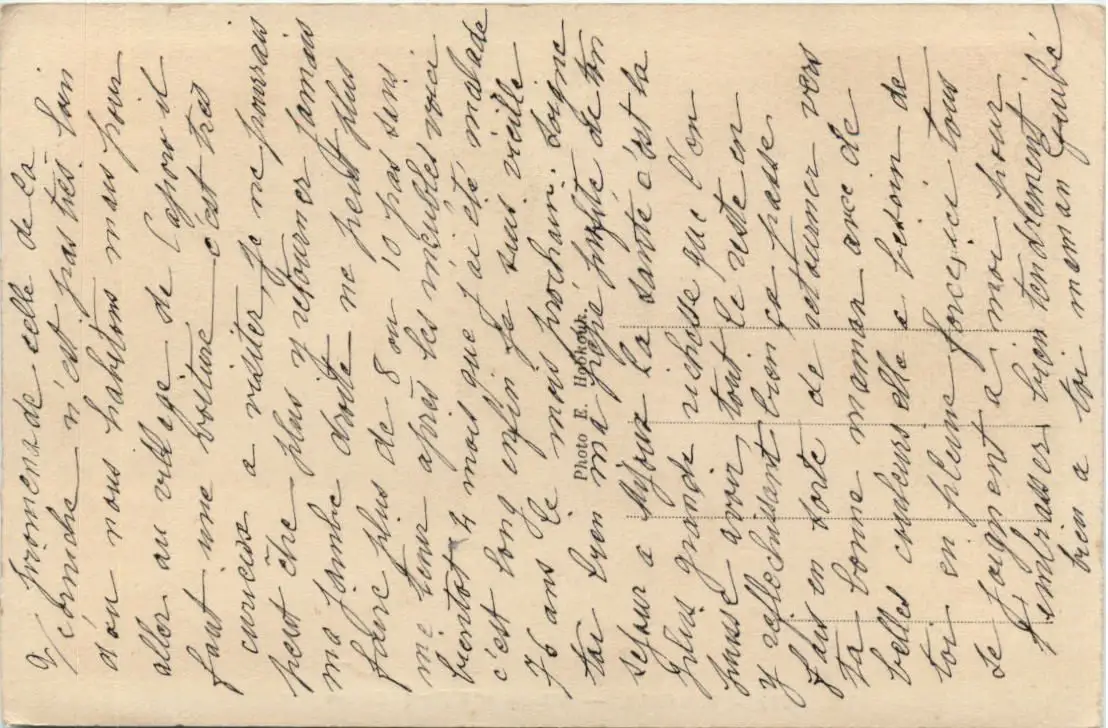 2/ promenade celle de la
Veranche n'est pas très loin
d'ou nous habitons mais pour
aller au village de Caporo il
faut une voiture c'est très
curieux a visiter, je ne pourrais
peut être plus y retourner jamais
ma jambe droite ne peut plus
faire plus de 8 ou 10 pas sans
me tenir après les meubles voici
bientot 4 mois que j'ai été malade
c'est long enfin je suis vieille
76 ans le mois prochain. soigne
toi bien ma pépé profite de ton
sejour a la santé c'est la
plus grande richesse que l'on
puisse avoir tout le reste en
y reflechissant bien ça passe
fais en sorte de retourner vers
ta bonne maman avec de
belles couleurs elle a besoin de
toi en pleine forces, ici tous
se joignent a moi pour
t'embrasser bien tendrement
bien a toi maman Guibé
Photo E. Hobkouk.